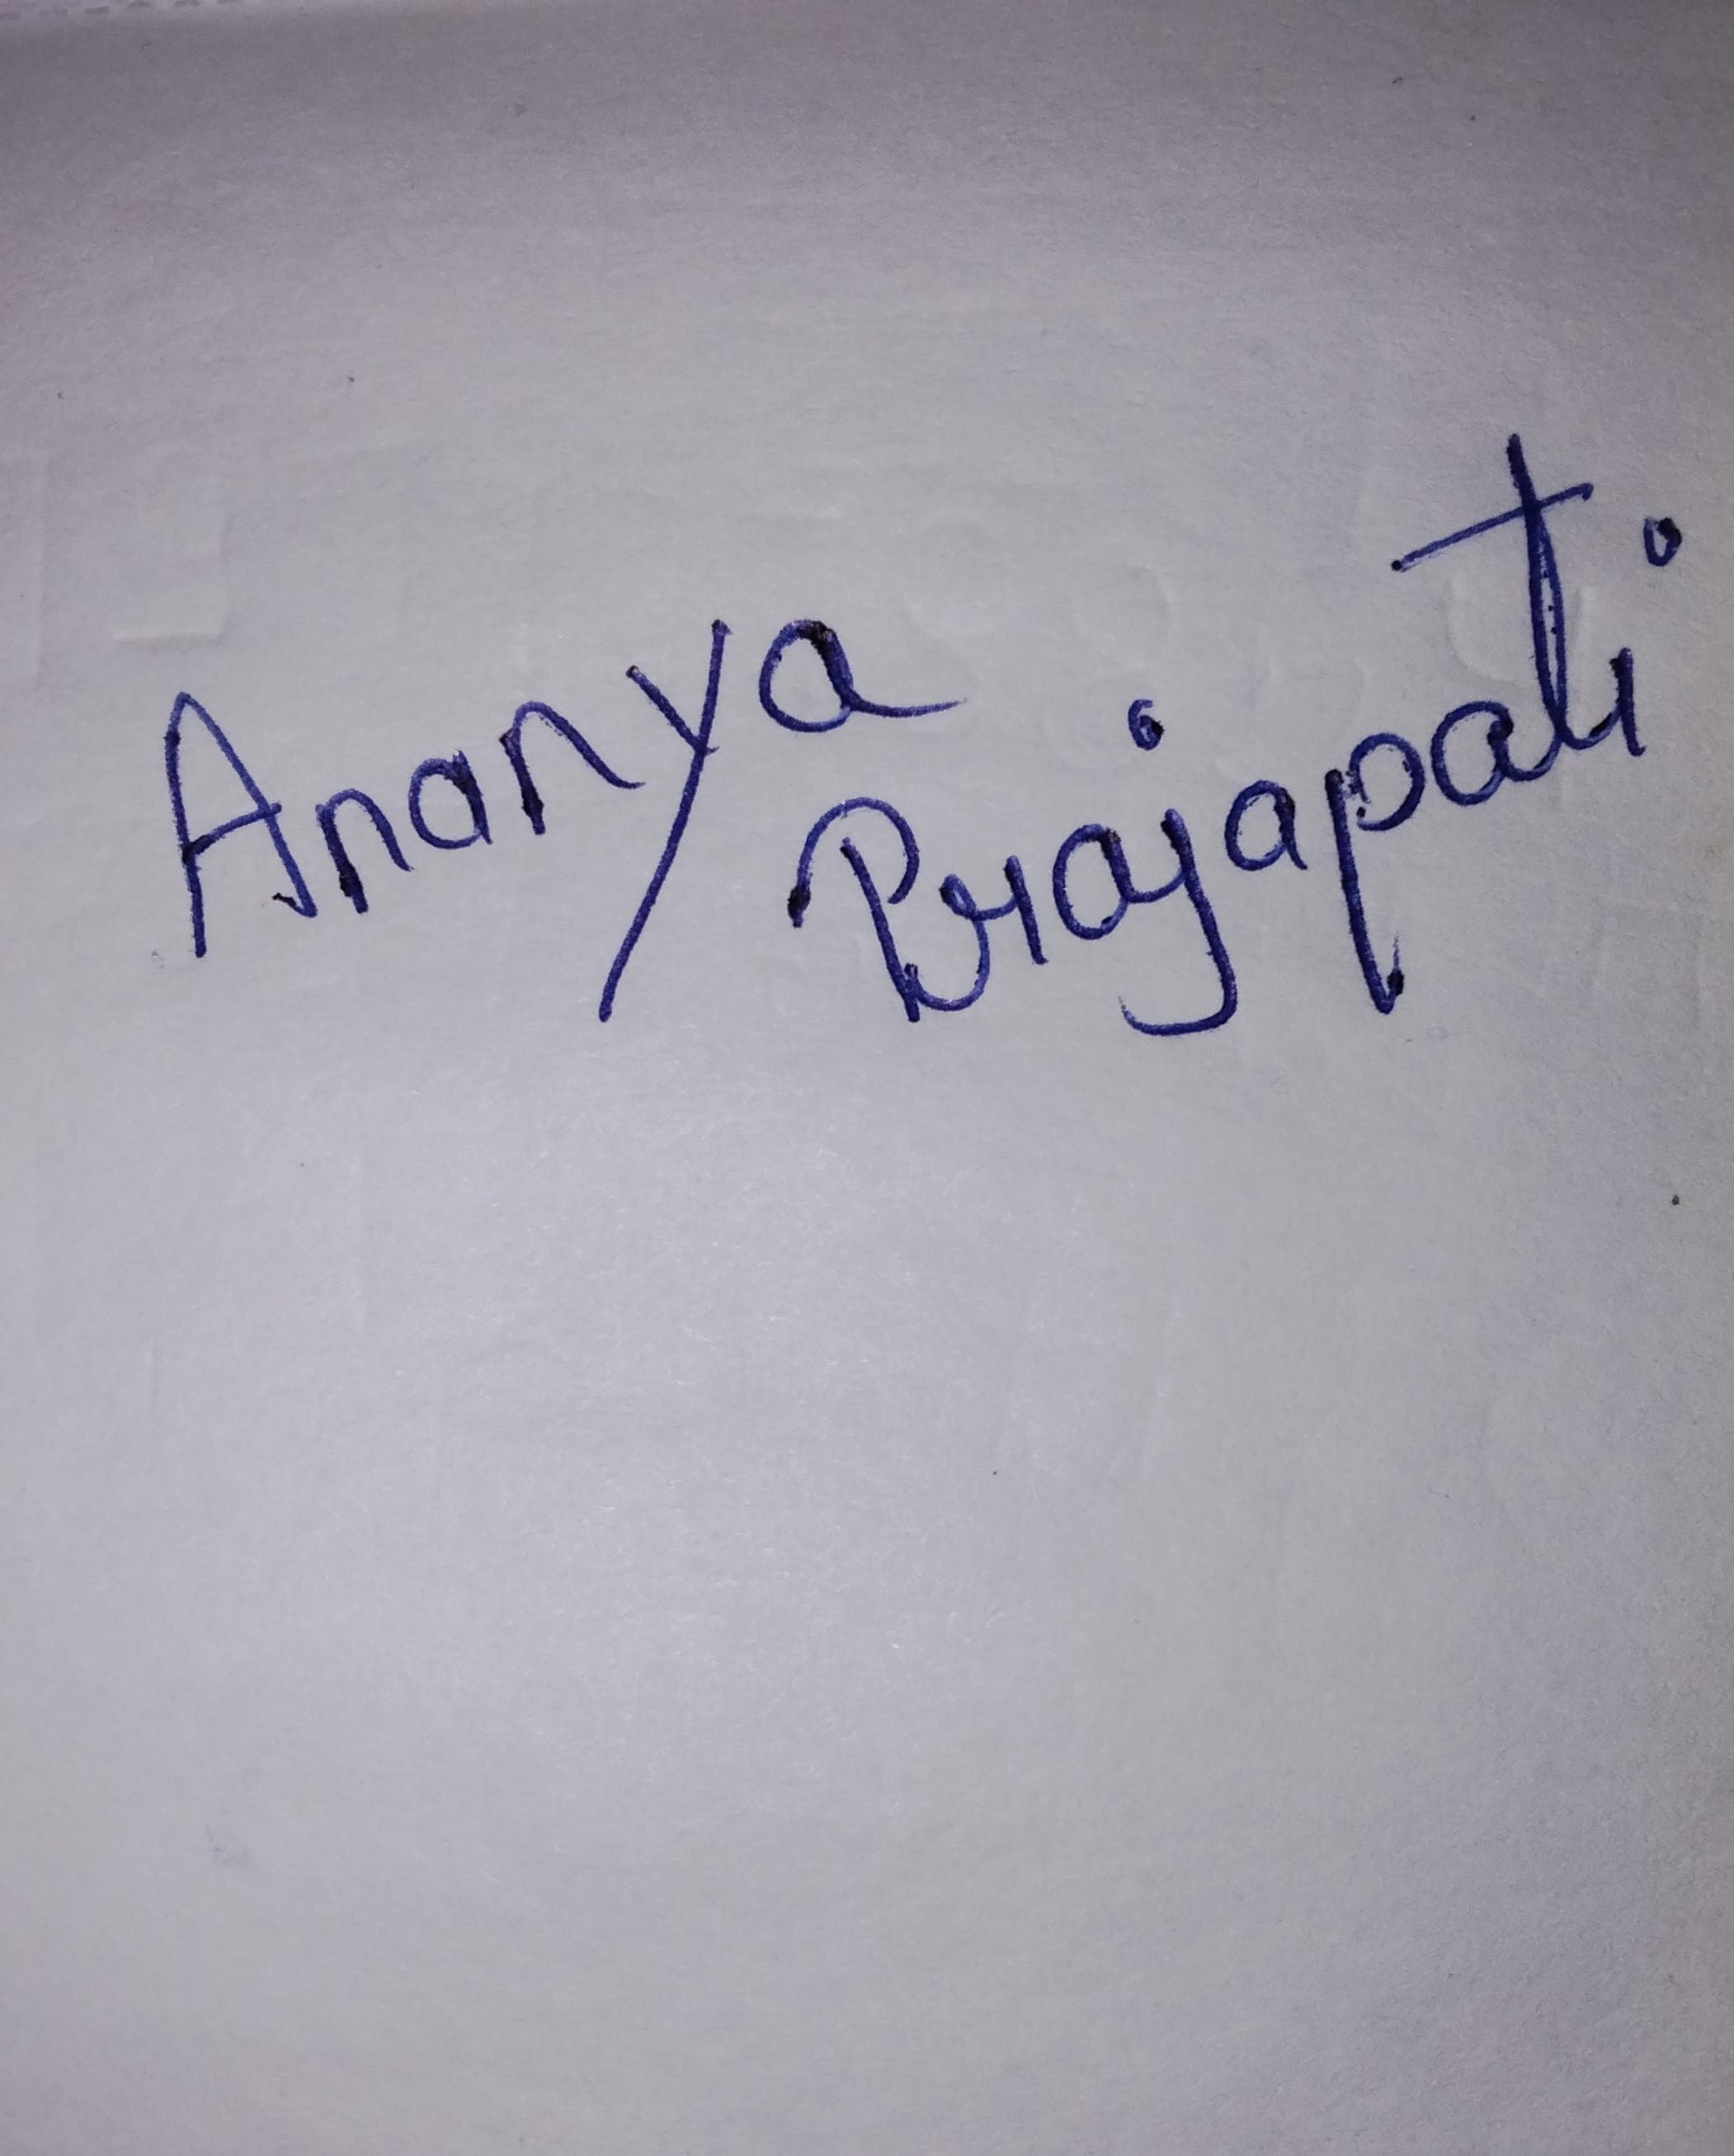 Ananya
Prajapati